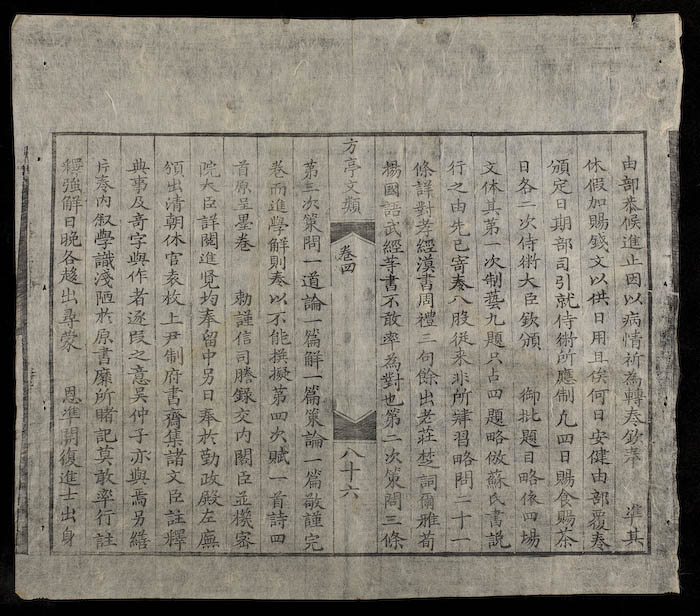 由部恭候進止因以病情祈為轉奏欽奉 準其
休假加賜錢文以供日用且俟何日安健由部覆奏
頒定日期部司引就侍衛所應制凡四日賜食賜茶
日各二次侍衛大臣欽頒 御批題目略依四場
文体其第一次制義九題只占四題略倣蘇氏書說
行之由先已寄奏八股從来非所肄習略問二十一
條詳對孝經漢書周禮三句餘出老莊楚詞爾雅荀
揚國語武經等書不敢率為對也第二次策問三條
方亭文類 卷四 八十六
第三次策問一道論一篇解一篇策論一篇敬謹完
卷而進學解則奏以不能撰擬第四次賦一首詩四
首原呈墨卷 勅謹信司謄錄交内閣臣並機密
院大臣詳閱進覽均奉留中另日奉於勤政殿左廡
頒出清朝休官袁枚上尹制府書齊集諸文臣註釋
典事及奇字與作者逐段之意吳仲子亦與焉另繕
片奏内叙學識淺陋於原書靡所睹記莫敢率行註
釋強解日晚各趨出尋蒙 恩准開復進士出身